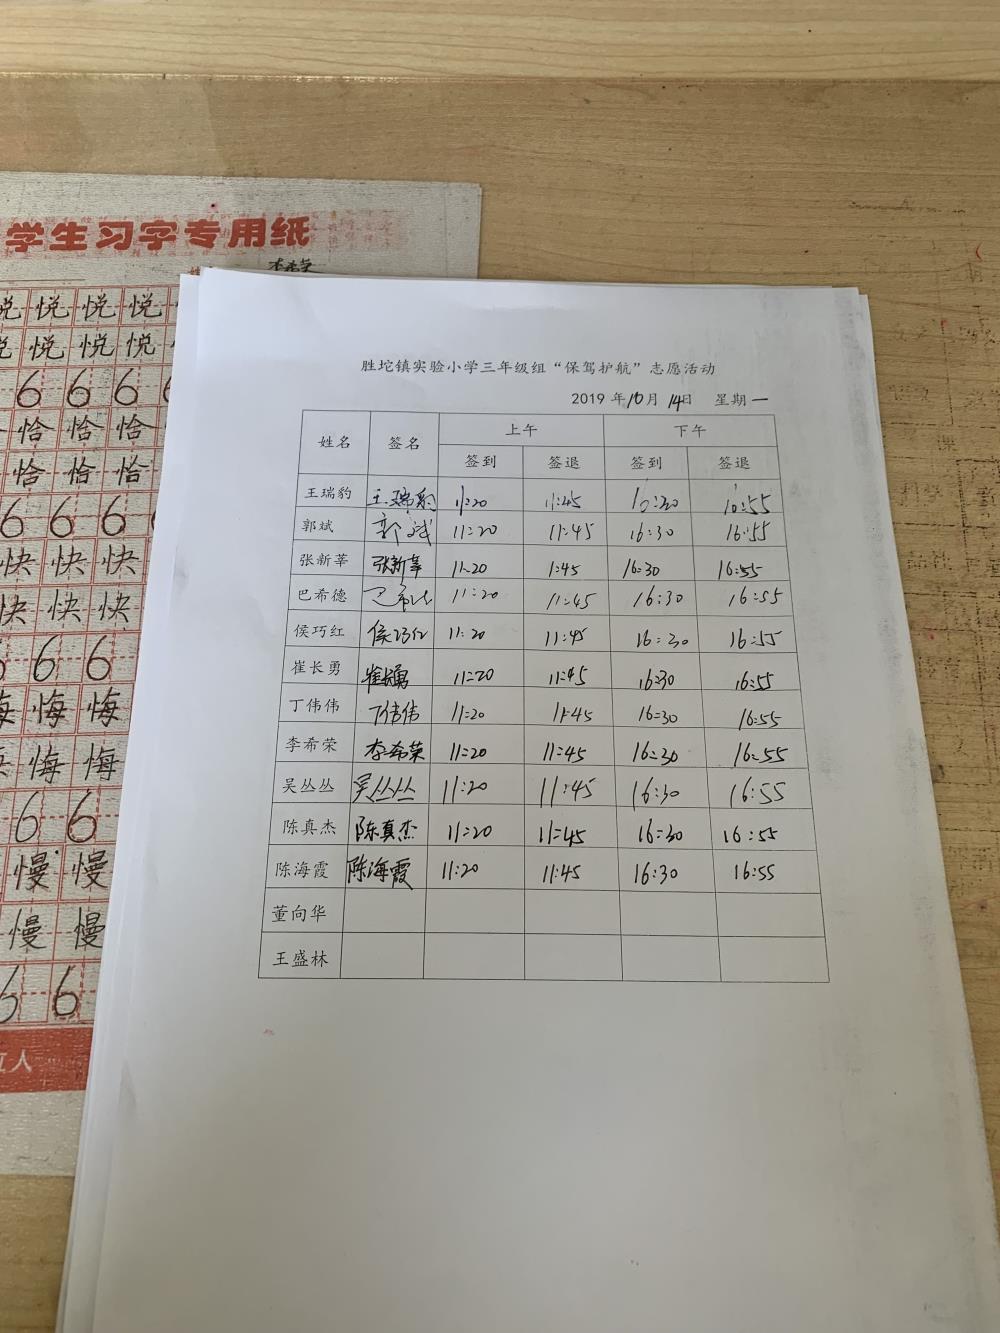 学生习字专用纸
悦 悦 悦 悦
悦 悦 悦 悦
6 6 6 6
恰 恰 恰
恰 恰 恰
6 6 6 6
快 快 快
快 快 快
6 6 6
悔 悔 悔
悔 悔
6 6
慢 慢
慢 慢
6 6
立人
胜坨镇实验小学三年级组“保驾护航”志愿活动
2019 年10月 14日 星期一
姓名 签名 上午 下午
签到 签退 签到 签退
王瑞豹 王瑞豹 11:20 11:45 16:30 16:55
郭斌 郭斌 11:20 11:45 16:30 16:55
张新莘 张新莘 11:20 1:45 16:30 16:55
巴希德 巴希德 11:20 11:45 16:30 16:55
侯巧红 侯巧红 11:20 11:45 16:30 16:55
崔长勇 崔长勇 11:20 11:45 16:30 16:55
丁伟伟 丁伟伟 11:20 11:45 16:30 16:55
李希荣 李希荣 11:20 11:45 16:30 16:55
吴丛丛 吴丛丛 11:20 11:45 16:30 16:55
陈真杰 陈真杰 11:20 11:45 16:30 16:55
陈海霞 陈海霞 11:20 11:45 16:30 16:55
董向华
王盛林